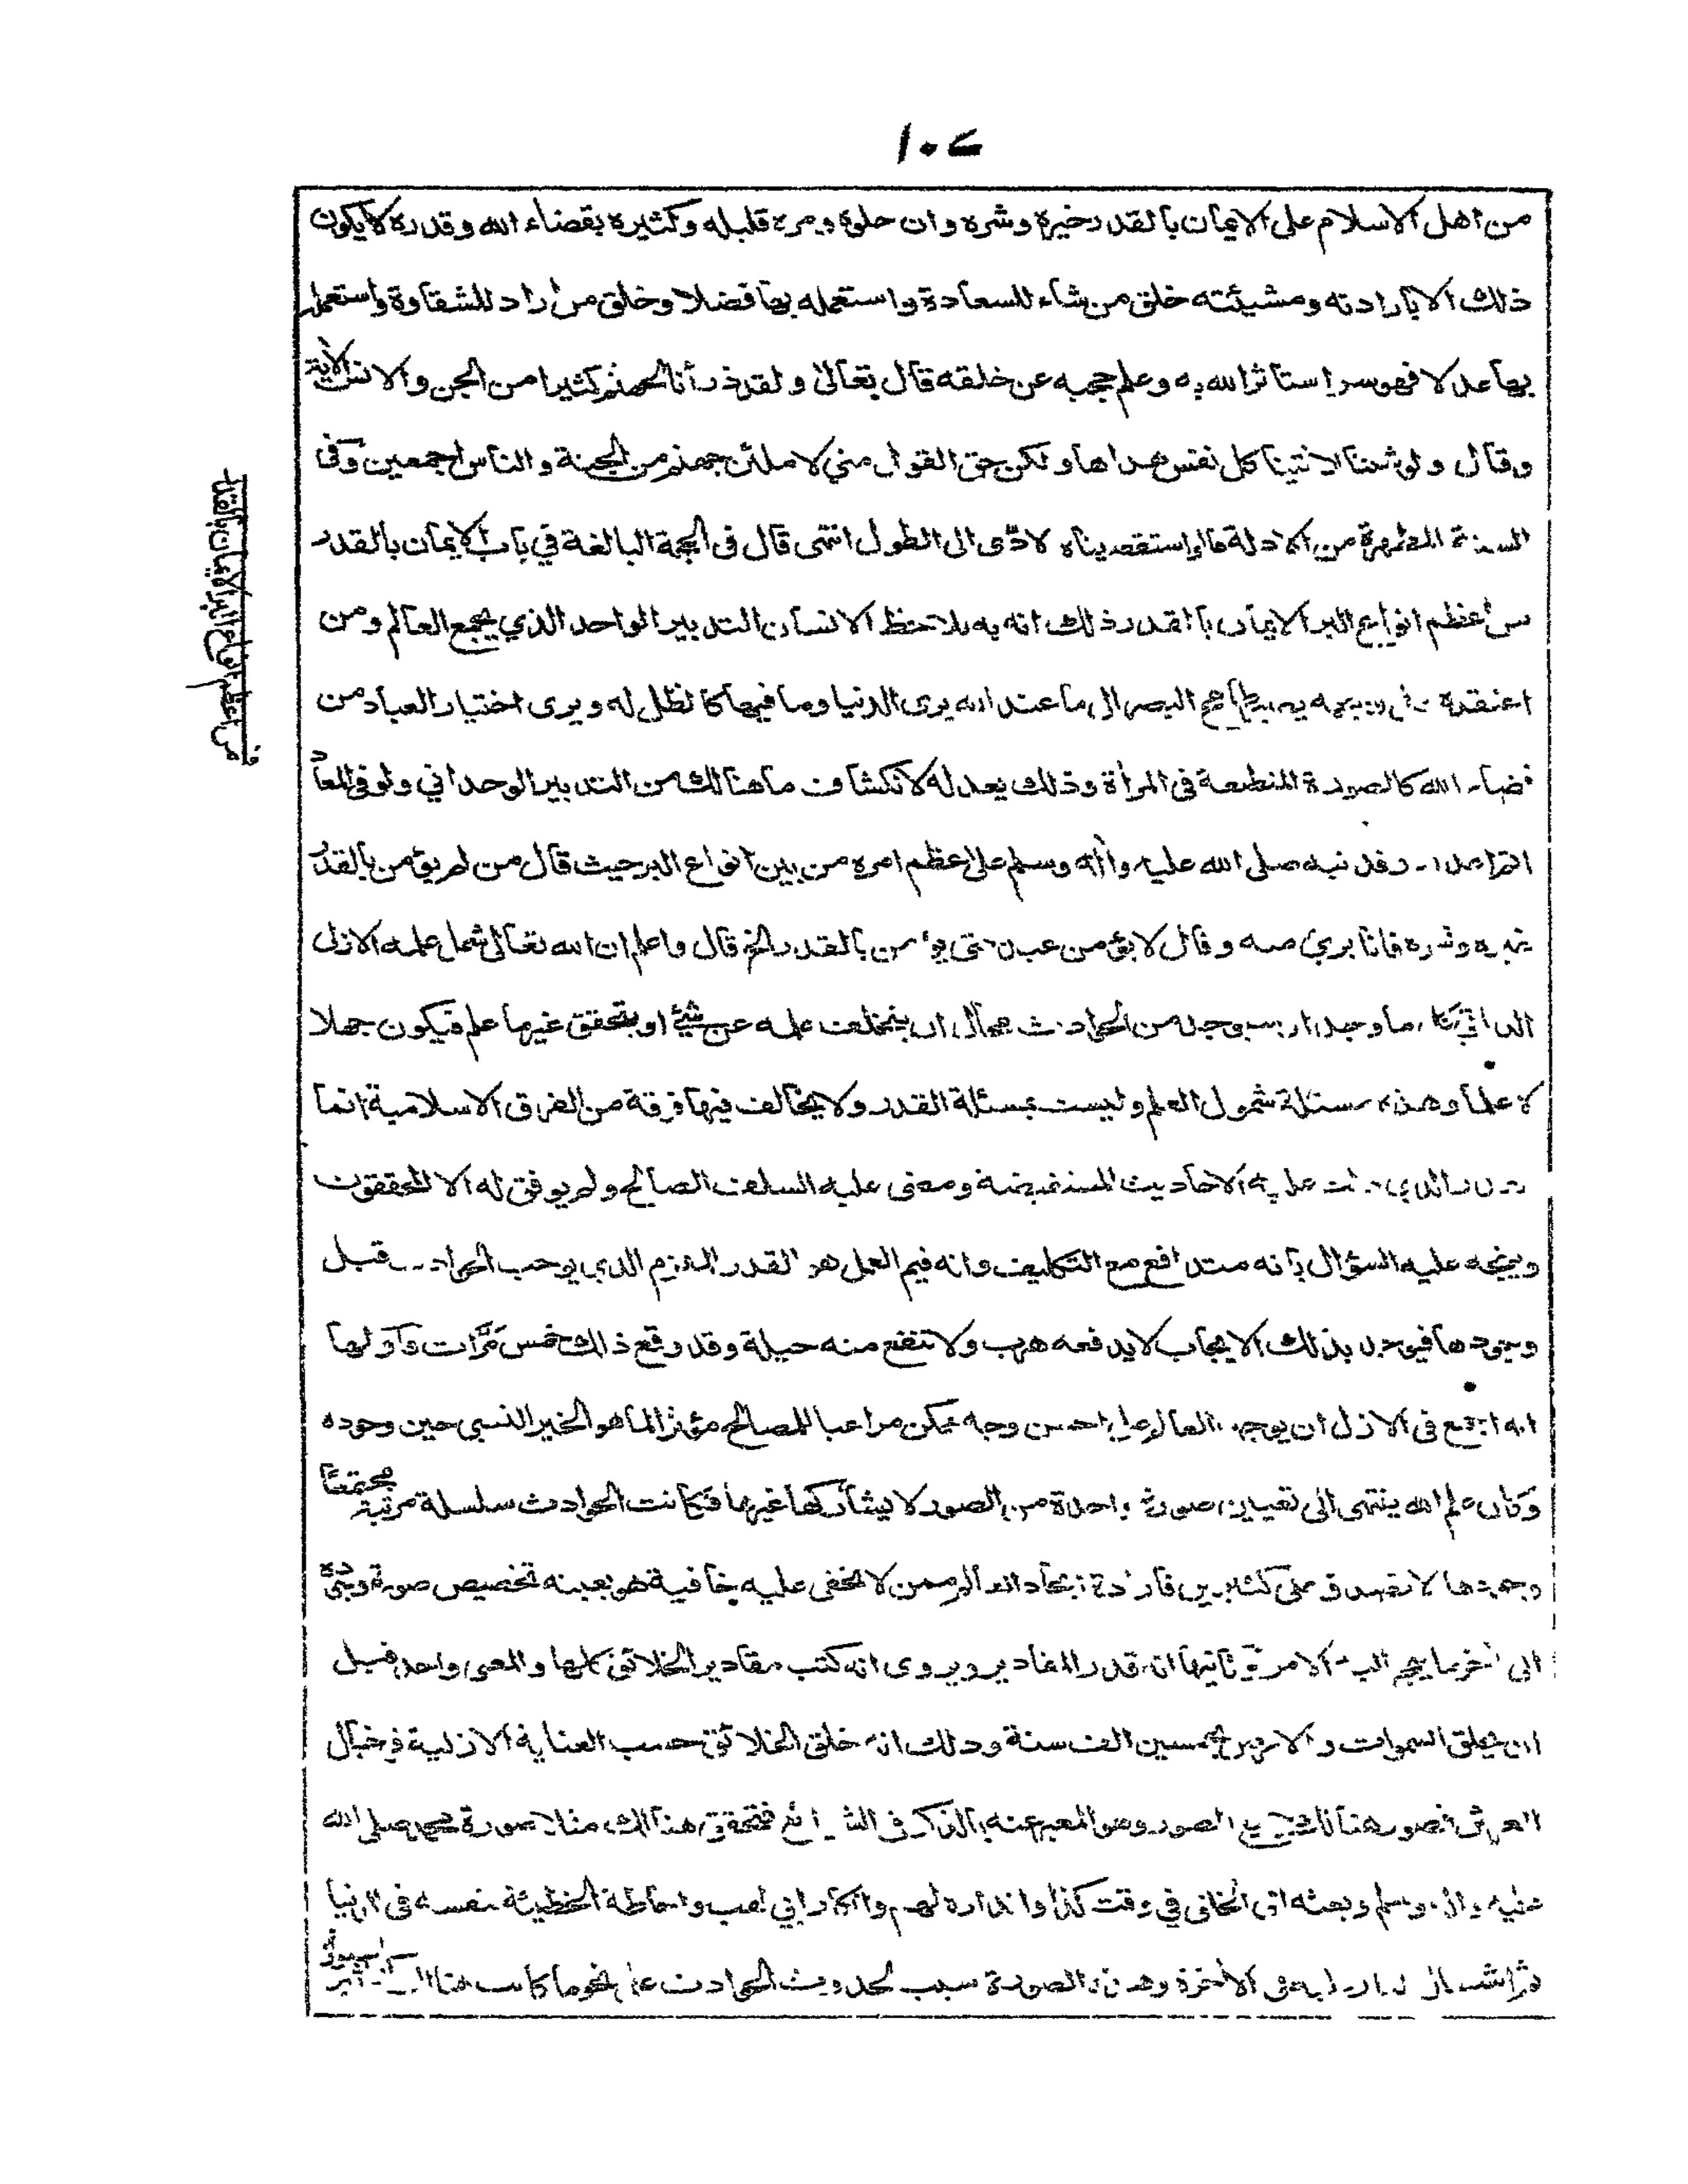 ١٠٧
من اهل الاسلام على الايمان بالقدر خيره وشره وان حلوه ومره قليله وكثيره بقضاء الله وقدره لا يكون
ذلك الا بارادته ومشيئته خلق من شاء للسعادة واستعمله بها فضلا وخلق من اراد للشقاوة واستعمله
بها عدلا فهو سر استاثر الله به وعلم حجبه عن خلقه قال تعالى ولقد ذرأنا لجهنم كثيرا من الجن والانس الآية
وقال ولو شئنا لاتينا كل نفس هداها ولكن حق القول مني لاملئن جهنم من الجنة والناس اجمعين وفى
السنة المطهرة من الادلة مالو استقصيناه لادى الى الطول انتهى قال فى الحجة البالغة في باب الايمان بالقدر
من اعظم انواع البر الايمان بالقدر وذلك انه به يلاحظ الانسان التدبير الواحد الذي يجمع العالم ومن
اعتقده على وجهه يصير طامح البصر الى ما عند الله يرى الدنيا وما فيها كالظل له ويرى اختيار العباد من
قضاء الله كالصورة المنطبعة فى المرأة وذلك يعد له لانكشاف ما هنالك من التدبير الوحداني ولو فى المعاد
اتم اعداد وقد نبه صلى الله عليه وآله وسلم على عظم امره من بين انواع البر حيث قال من لم يؤمن بالقدر
خيره وشره فانا بريئ منه وقال لا يؤمن عبد حتى يؤمن بالقدر الخ قال واعلم ان الله تعالى شمل علمه الازلى
الذاتي كل ما وجد او سيوجد من الحوادث محال ان يتخلف علمه عن شيئ او يتحقق غير ما علم فيكون جهلا
لا علما وهذه مسئلة شمول العلم وليست بمسئلة القدر ولا يخالف فيها فرقة من الفرق الاسلامية انما
القدر الذي دلت عليه الاحاديث المستفيضة ومضى عليه السلف الصالح ولم يوفق له الا المحققون
ويتجه عليه السؤال بانه متدافع مع التكليف وانه فيم العمل هو القدر الملزم الذي يوجب الحوادث قبل
وجودها فيوجد بذلك الايجاب لا يدفعه هرب ولا تنفع منه حيلة وقد وقع ذلك خمس مرّات فاولها
انه اجمع فى الازل ان يوجد العالم على احسن وجه ممكن مراعيا للمصالح مؤثرا لما هو الخير النسبى حين وجوده
وكان علم الله ينتهى الى تعيين صورة واحدة من الصور لا يشاركها غيرها فكانت الحوادث سلسلة مرتبة مجتمعًا
وجودها لا تصدق على كثيرين فارادة ايجاد العالم ممن لا تخفى عليه خافية هو بعينه تخصيص صورة وجوده
الى آخر ما ينجر اليه الامر وثانيها انه قدر المقادير ويروى انه كتب مقادير الخلائق كلها والمعنى واحد قبل
ان يخلق السموات والارض بخمسين الف سنة وذلك انه خلق الخلائق حسب العناية الازلية في خيال
العرش فصور هنالك جميع الصور وهو المعبر عنه بالذكر فى الشرائع فتحقق هنالك مثلا صورة محمد صلى الله
عليه واله وسلم وبعثه الى الخلق في وقت كذا وانذاره لهم وانكار ابي لهب واحاطة الخطيئة بنفسه فى الدنيا
ثم اشتعال النار عليه فى الآخرة وهذه الصورة سبب لحدوث الحوادث على نحو ما كانت هنالك
من اعظم انواع البر الايمان بالقدر